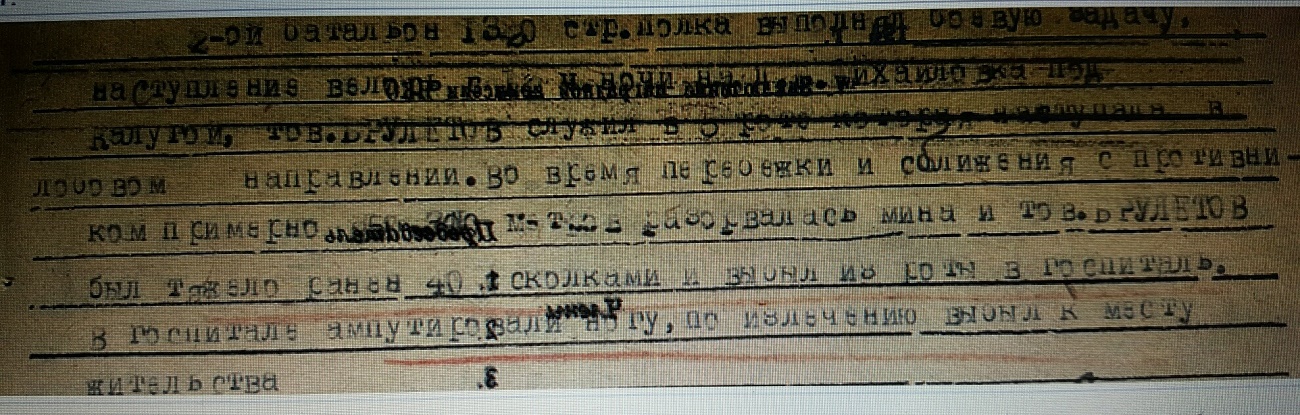 2-ой батальон 1320 стр.полка выполняя боевую задачу,
наступление вело ночи на д. Михайловка под
Калугой, тов.БРУЛЕТОВ служил в 5 роте которая наступала в
лобовом направлении.Во время перебежки и сближения с противни-
ком примерно м-тков разорвалась мина и тов.БРУЛЕТОВ
был тяжело ранен 40 осколками и выбыл из роты в госпиталь.
В госпитале ампутировали ногу,по излечению выбыл к месту
жительства